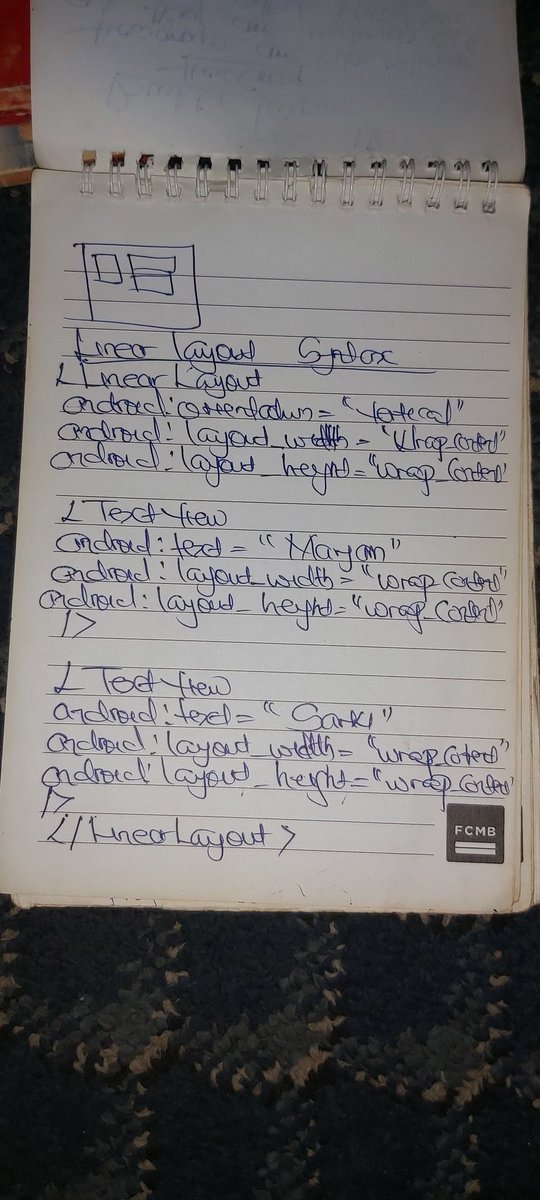 Linear Layout Syntax
< Linear Layout
android:orientation= "Vertical"
android: layout_width = "Wrap_content"
android: layout_height="wrap_content"
< Text View
android:text= "Maryam"
android: layout_width="wrap_content"
android: layout_height="wrap_content"
/>
< Text View
android:text= "Sarki"
android: layout_width= "wrap_content"
android: layout_height="wrap_content"
/>
</LinearLayout>
FCMB